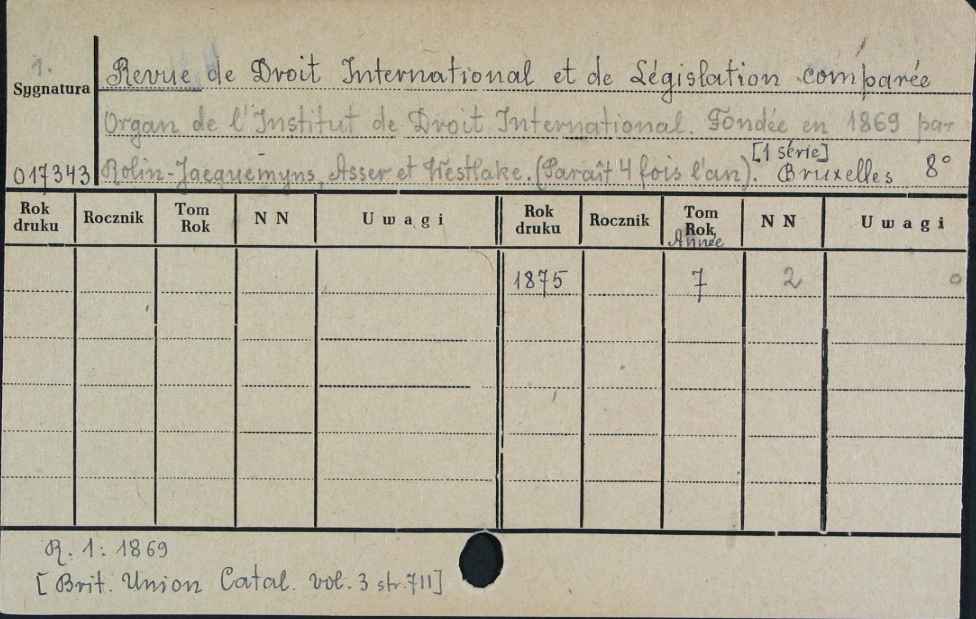 1.
Sygnatura
017343
Revue de Droit International et de Législation comparée
Organ de l'Institut de Droit International. Fondée en 1869 par
Rolin-Jaequemyns, Asser et Westlake. (Paraît 4 fois l'an). Bruxelles 8°
[1 série]
Rok druku Rocznik Tom Rok N N Uwagi Rok druku Rocznik Tom Rok N N Uwagi
Année
1875 7 2 0
R. 1: 1869
[Brit. Union Catal. vol. 3 str. 711]